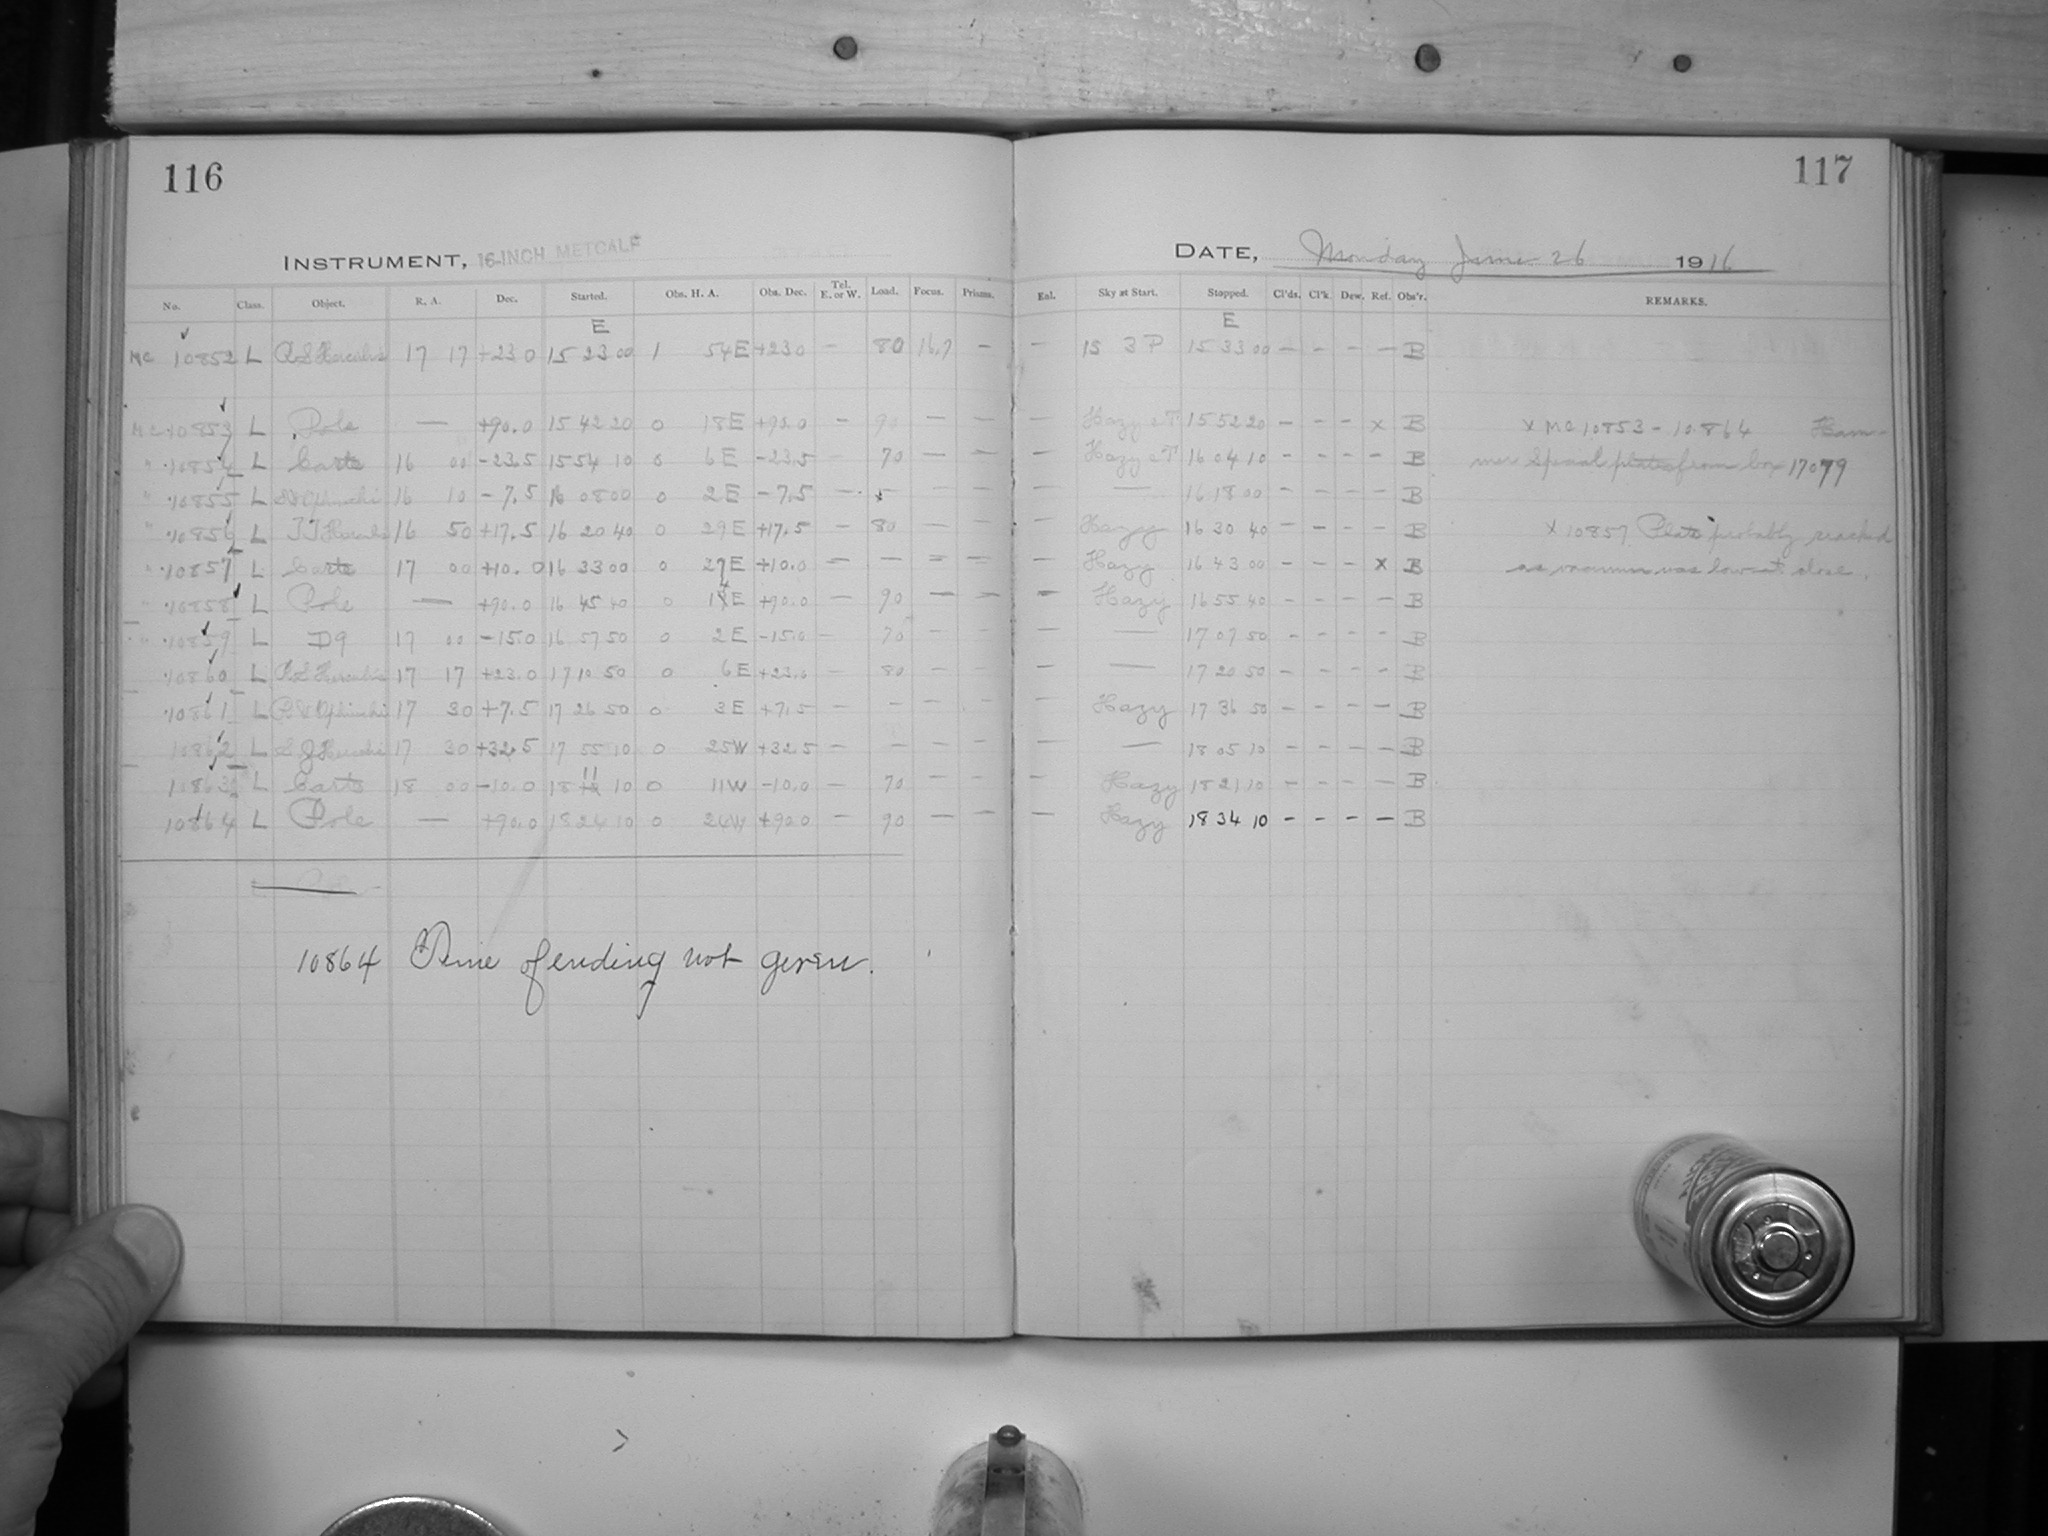 116
117
INSTRUMENT, 16-INCH METCALF
DATE, Monday June 26 1916
No. Class. Object. R. A. Dec. Started. Obs. H. A. Obs. Dec. Tel. E. or W. Load. Focus. Prisms. Eal. Sky at Start. Stopped. Cl'ds. Cl'k. Dew. Ref. Obs'r. REMARKS.
E E
MC 10852 L RS Herculis 17 17 +23.0 15 23 00 1 54E +23.0 - 80 16.7 - - 15 3P 15 33 00 - - - - B
MC 10853 L Pole — +90.0 15 42 20 0 18E +90.0 - 90 - - - Hazy 15 52 20 - - - x B x MC 10853 - 10864 Ham-
" 10854 L Carte 16 00 -23.5 15 54 10 0 6E -23.5 - 70 - - - Hazy 16 04 10 - - - - B mer Special plates from box 17079
" 10855 L Ophiuchi 16 10 -7.5 16 08 00 0 2E -7.5 - - - - - — 16 18 00 - - - - B
" 10856 L TT Herculis 16 50 +17.5 16 20 40 0 29E +17.5 - 80 - - - Hazy 16 30 40 - - - - B x 10857 Plate probably cracked
" 10857 L Carte 17 00 +10.0 16 33 00 0 27E +10.0 - - - - - Hazy 16 43 00 - - - x B as vacuum was low at close.
" 10858 L Pole — +90.0 16 45 40 0 14E +90.0 - 90 - - - Hazy 16 55 40 - - - - B
" 10859 L D9 17 00 -15.0 16 57 50 0 2E -15.0 - 70 - - - — 17 07 50 - - - - B
10860 L RS Herculis 17 17 +23.0 17 10 50 0 6E +23.0 - 80 - - - — 17 20 50 - - - - B
10861 L Ophiuchi 17 30 +7.5 17 26 50 0 3E +7.5 - - - - - Hazy 17 36 50 - - - - B
10862 L Herculis 17 30 +32.5 17 55 10 0 25W +32.5 - - - - - — 18 05 10 - - - - B
10863 L Carte 18 00 -10.0 18 11 10 0 11W -10.0 - 70 - - - Hazy 18 21 10 - - - - B
10864 L Pole — +90.0 18 24 10 0 24W +90.0 - 90 - - - Hazy 18 34 10 - - - - B
10864 Time of ending not given.